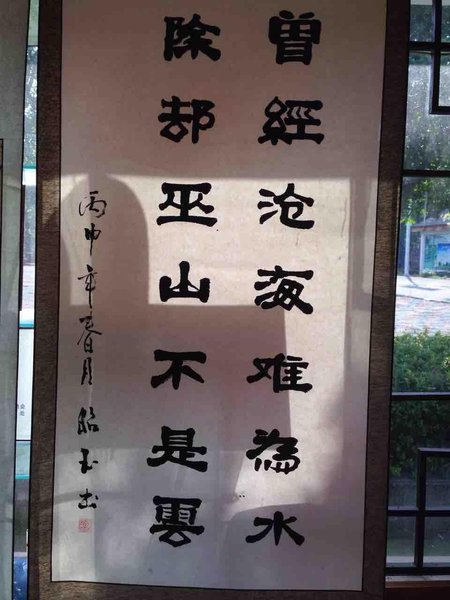 曾經沧海难為水
除却巫山不是雲
丙申年春月